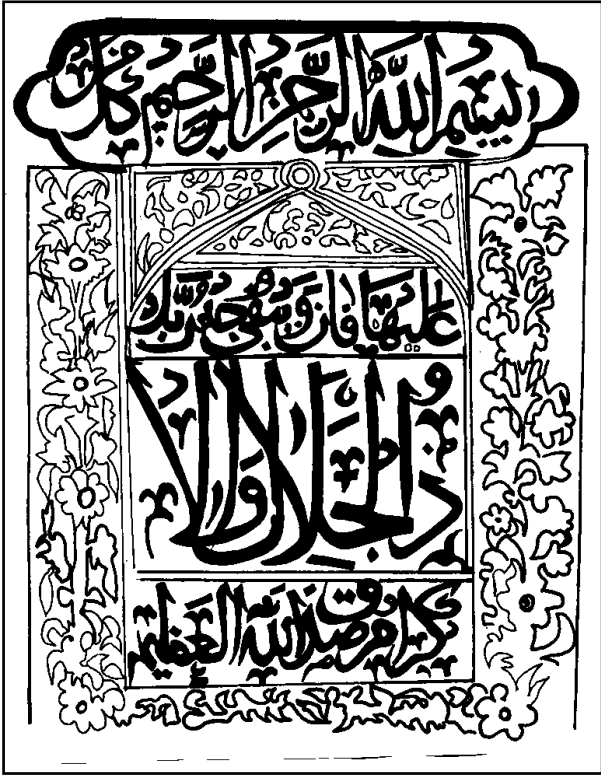 بسم الله الرحمن الرحيم كل من
عليها فان ويبقى وجه ربك
ذو الجلال والا
كرام صدق الله العظيم